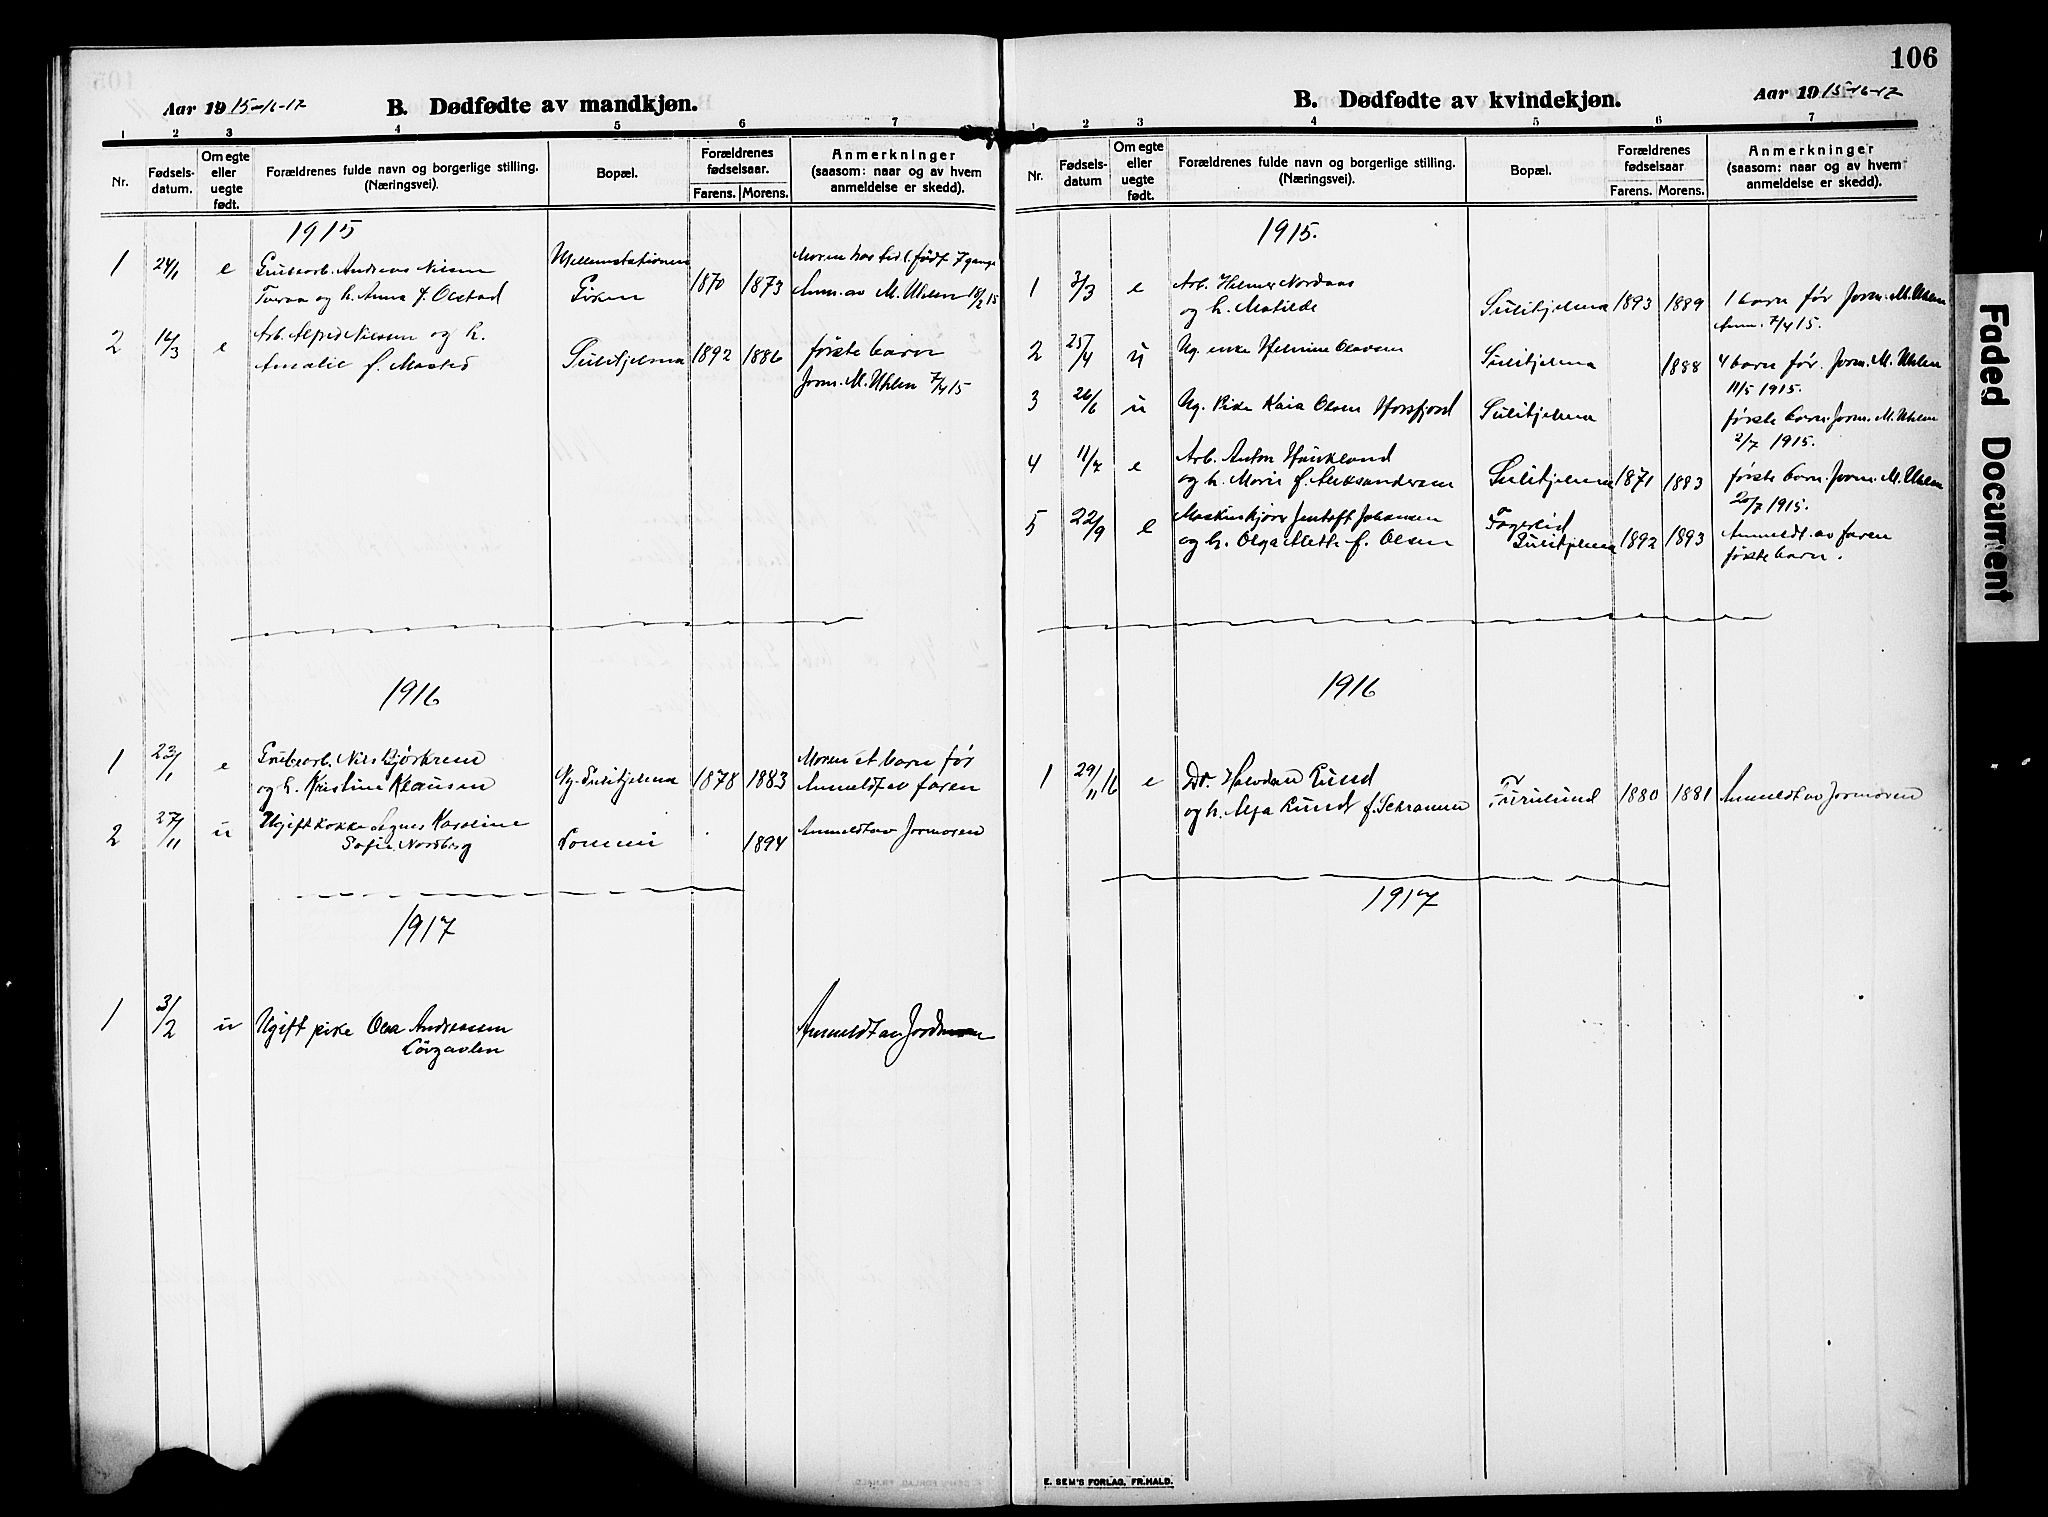 106
Aar 1915-16-17
B. Dødfødte av mandkjøn.
1 2 3 4 5 6 7
Nr.
Fødsels-
datum.
Om egte
eller
uegte
født.
Forældrenes fulde navn og borgerlige stilling.
(Næringsvei).
Bopæl.
Forældrenes
fødselsaar.
Farens. Morens.
Anmerkninger
(saasom: naar og av hvem
anmeldelse er skedd).
1915
1 24/1 e Grubearb. Andreas Nilsen Mellemstationen 1870 1873 Moren har tidl. født 7 gange
og h. Anna f. Olstad Giken Anm. av M. Uhlen 18/2 15
2 16/3 e Arb. Alfred Nilssen og h. Sulitjelma 1892 1886 første barn
Amalie f. Jorm. M. Uhlen 7/4 15
1916
1 23/1 e Grubearb. Nils Ny-Sulitjelma 1878 1883 Moren et barn før
og h. Kristine Klausen Anmeldt av faren
2 27/11 u Ugift kokke Agnes Karoline Lommi 1894 Anmeldt av Jormoren
Sofie Nordberg
1917
1 3/2 u Ugift pike Olea Andreassen Anmeldt av
Løvgavlen
B. Dødfødte av kvindekjøn.
Aar 1915-16-17
1 2 3 4 5 6 7
Nr.
Fødsels-
datum
Om egte
eller
uegte
født.
Forældrenes fulde navn og borgerlige stilling.
(Næringsvei).
Bopæl.
Forældrenes
fødselsaar
Farens. Morens.
Anmerkninger
(saasom: naar og av hvem
anmeldelse er skedd).
1915.
1 3/3 e Arb. Hilmer Nordaas Sulitjelma 1893 1889 1 barn før Jorm. M. Uhlen
og h. Matilde Anm. 7/4 15.
2 25/4 u Ug. enke Helmine Olavsen Sulitjelma 1888 4 barn før. Jorm. M. Uhlen
11/5 1915.
3 26/6 u Ug. Pike Kaia Olsen Sulitjelma første barn. Jorm. M. Uhlen
2/7 1915.
4 11/7 e Arb. Anton Haukland Sulitjelma 1871 1883 første barn. Jorm. M. Uhlen
og h. Marie f. Aleksandersen 20/7 1915.
5 22/9 e Maskinkjører Jentoft Johansen Fagerlid 1892 1893 Anmeldt av faren
og h. Olga Mette f. Olsen Sulitjelma første barn.
1916
1 29/11 16 e Dr. Halvdan Lund Furulund 1880 1881 Anmeldt av Jormoren
og h. Lund f. Schramm
1917
E. SEM'S FORLAG, FR.HALD.
Faded Document